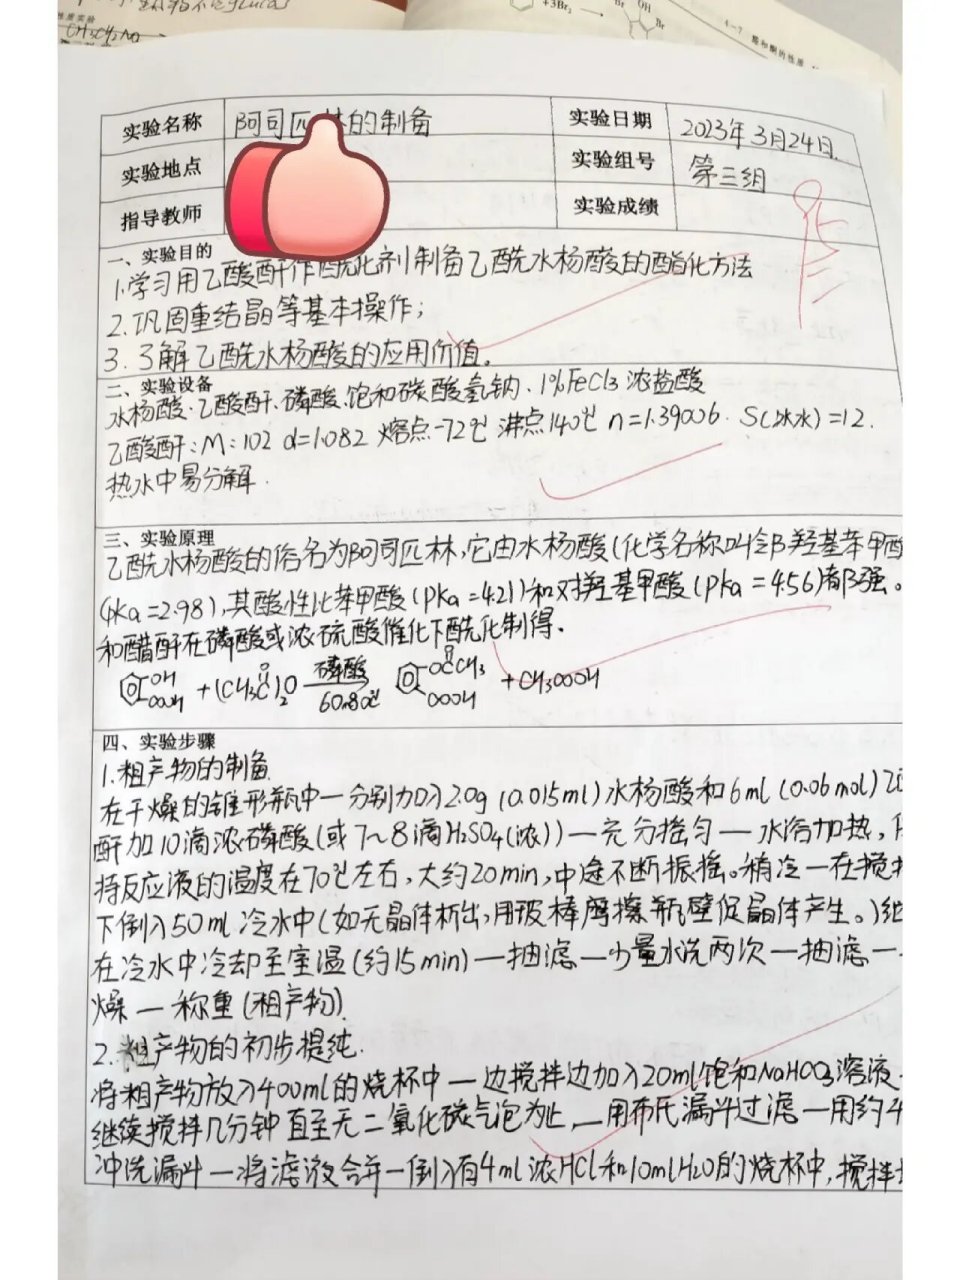 +3Br₂ Br OH Br
4-7 醛和酮的性质
性质实验
实验名称 阿司匹林的制备 实验日期 2023年3月24日.
实验地点 实验组号 第三组
指导教师 实验成绩
一、实验目的
1.学习用乙酸酐作酰化剂制备乙酰水杨酸的酯化方法
2.巩固重结晶等基本操作;
3.了解乙酰水杨酸的应用价值。
二、实验设备
水杨酸.乙酸酐.磷酸.饱和碳酸氢钠、1%FeCl3 浓盐酸
乙酸酐:M:102 d=1.082 熔点-72℃ 沸点140℃ n=1.39006. S(冰水)=12.
热水中易分解.
三、实验原理
乙酰水杨酸的俗名为阿司匹林,它由水杨酸(化学名称叫邻羟基苯甲酸
(pKa=2.98),其酸性比苯甲酸(pKa=4.21)和对羟基甲酸(pKa=4.56)都强。
和醋酐在磷酸或浓硫酸催化下酰化制得.
OH COOH +(CH3C)2O O 磷酸 60~80℃ OCCH3 O COOH +CH3COOH
四、实验步骤
1.粗产物的制备
在干燥的锥形瓶中一分别加入2.0g(0.015ml)水杨酸和6ml(0.06mol)乙
酐加10滴浓磷酸(或7~8滴H2SO4(浓))—充分摇匀—水浴加热,
持反应液的温度在70℃左右,大约20min,中途不断振摇。稍冷一在搅拌
下倒入50ml冷水中(如无晶体析出,用玻棒摩擦瓶壁促晶体产生。)继
在冷水中冷却至室温(约15min)—抽滤—少量水洗两次—抽滤—
燥—称重(粗产物).
2.粗产物的初步提纯.
将粗产物放入400ml的烧杯中—边搅拌边加入20ml饱和NaHCO3溶液
继续搅拌几分钟直至无二氧化碳气泡为止,—用布氏漏斗过滤—用约4
冲洗漏斗—将滤液合并—倒入有4ml浓HCl和10mlH2O的烧杯中,搅拌